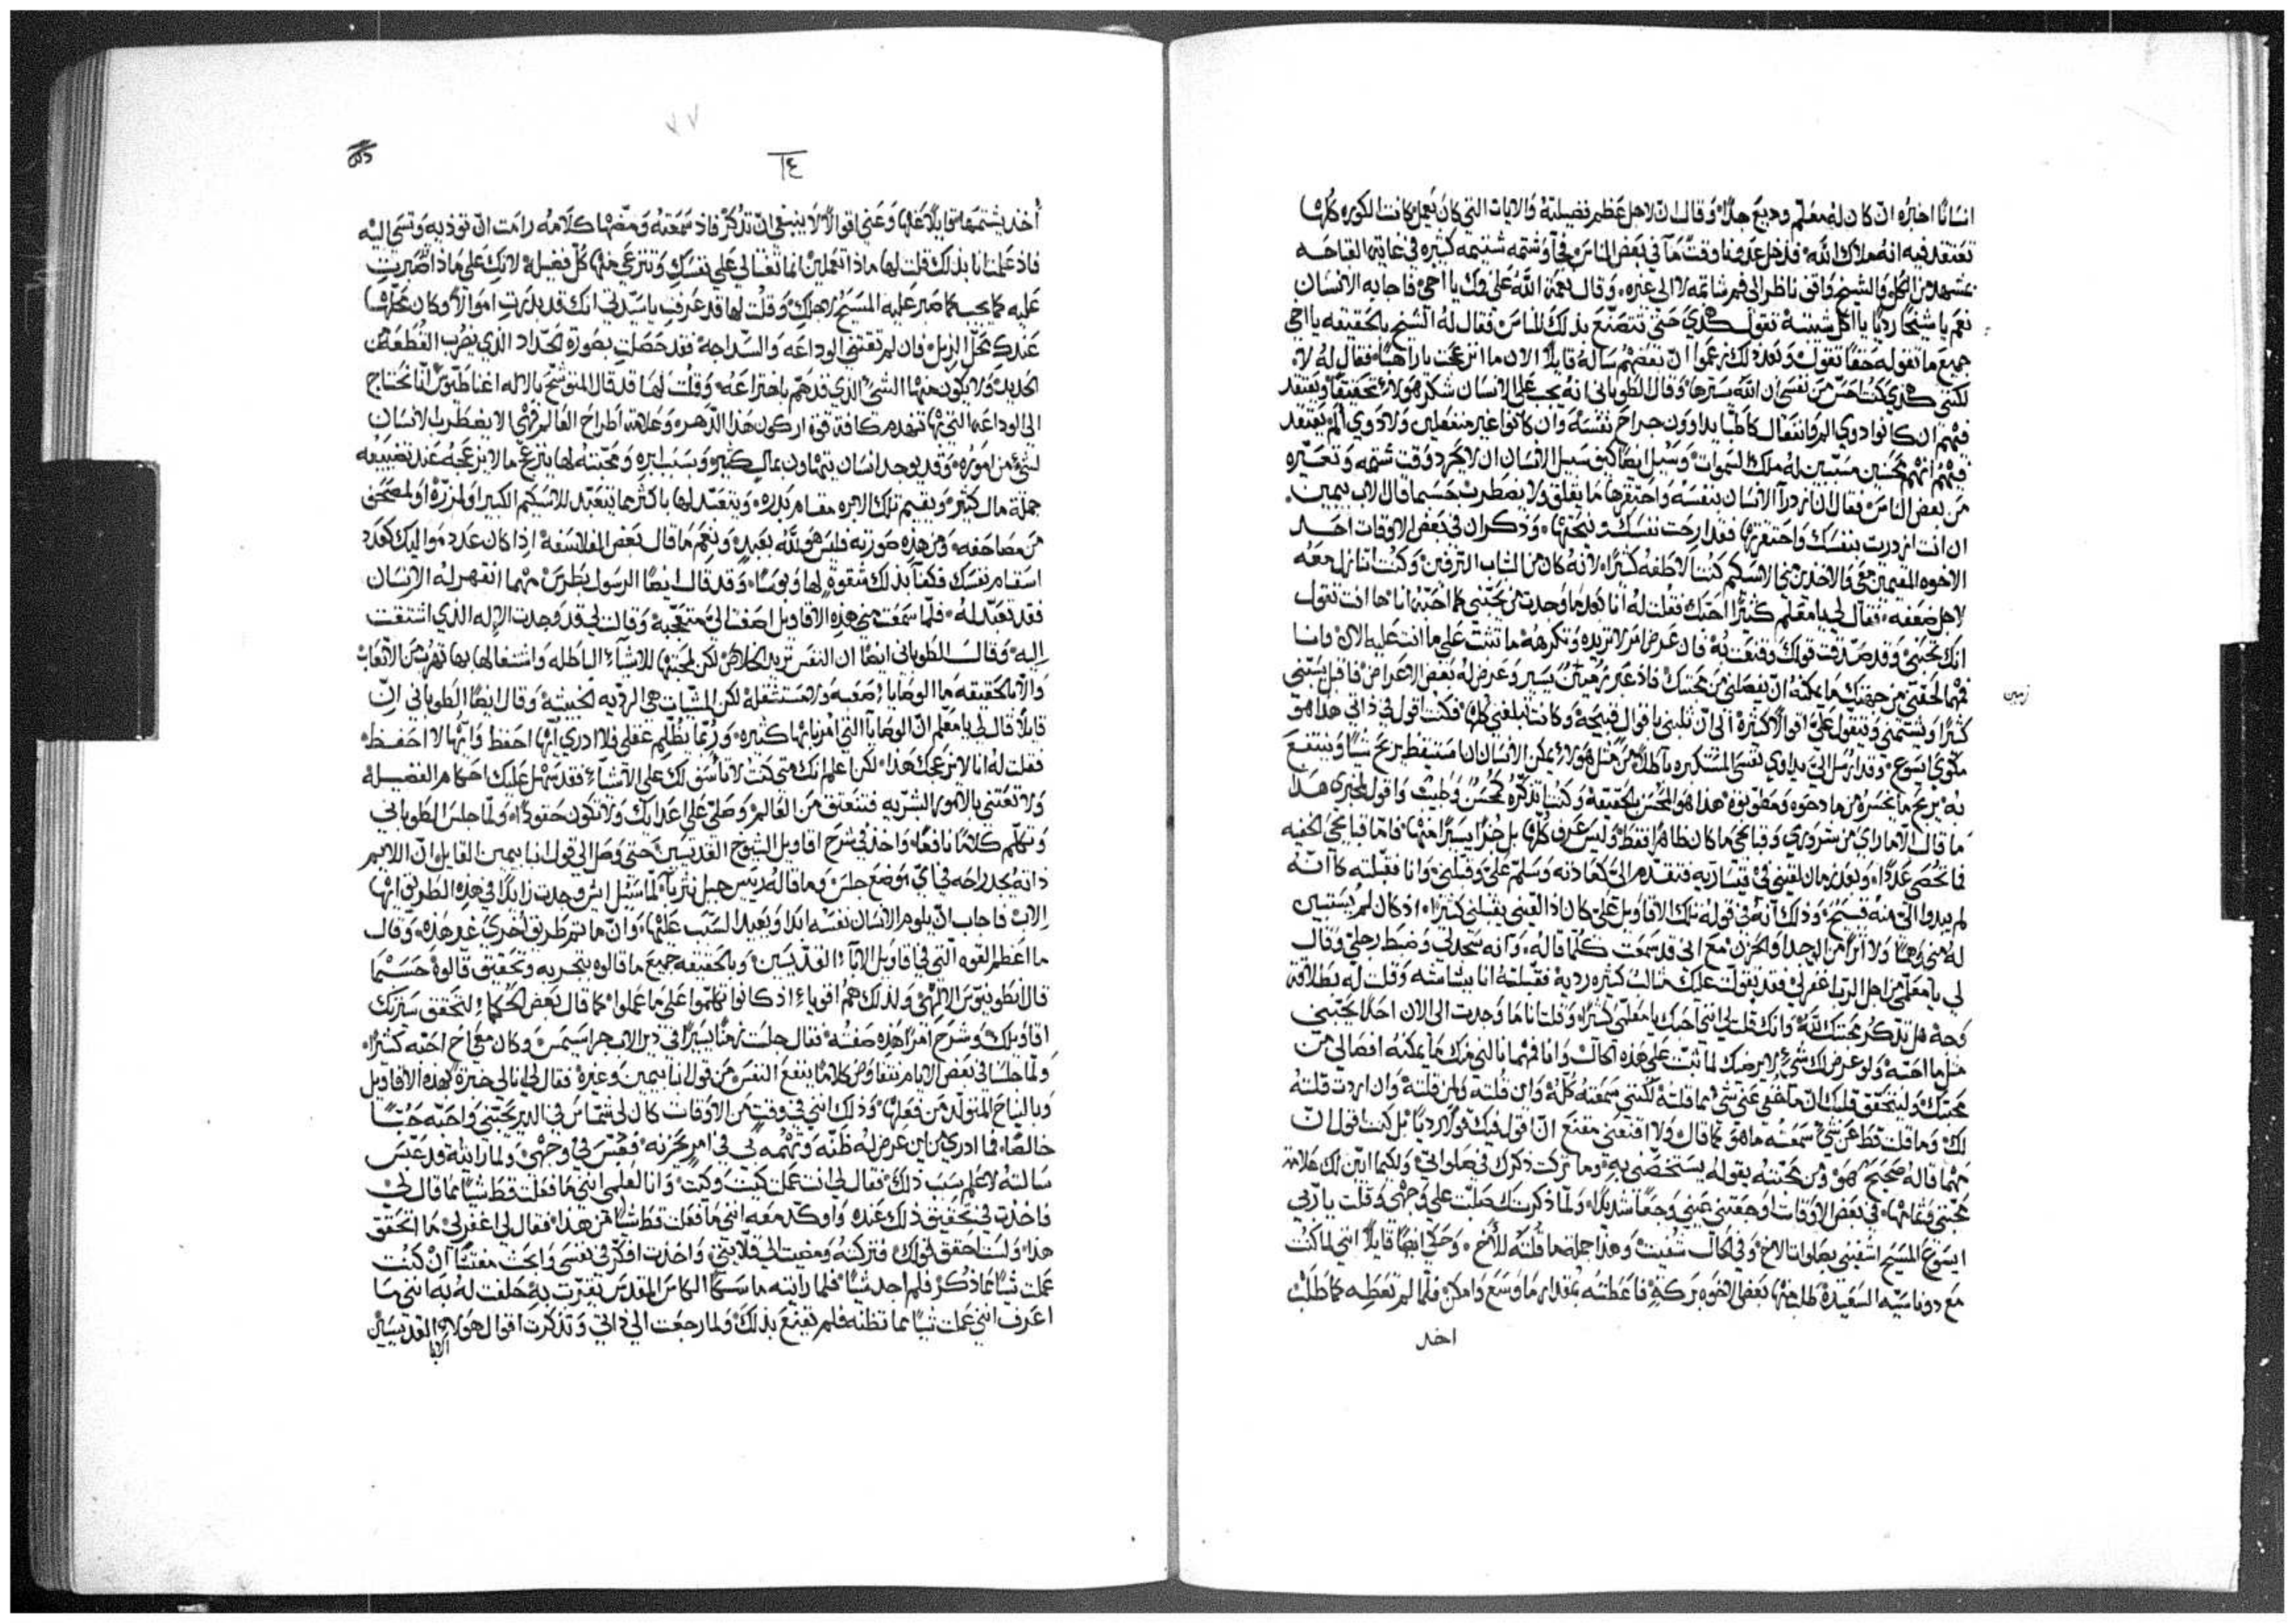 انسانًا اخبره ان كان له معلم وديع جدًا وقال ان لاجل عظم فضيلته والايات التي كان يعمل كانت الكوره كلها
تعتقد فيه انه ملاك الله فدخل عدونا وقتًا ما في بعض الناس فجا وشتمه شتيمه كثيره في غايتها القباحه
بمشهد من الكل والشيخ واقف ناظر الى فم شاتمه لا الى غيره وقال نعمة الله على فمك يا اخي فاجابه الانسان
نعم يا شيخًا رديًا يا اكل شيبته تقول كذي حتى تتصنع بذلك للناس فقال له الشيخ بالحقيقه يا اخي
جميع ما تقوله حقًا تقول وبعد ذلك زعموا ان بعضهم ساله قايلًا الان ما انزعجت يا راهبًا فقال له لا
لكنني كذي كنت احس من نفسي ان الله يسترها وقال الطوباني انه يجب على الانسان شكر هولاء تحقيقًا ويعتقد
فيهم ان كانوا ذوي الم وانفعال كاطبا يداوون جراح نفسه وان كانوا غير منفعلين ولا ذوي الم يعتقد
فيهم انهم محسنين مسببين له ملك السموات وسيل ايضًا كيف سبيل الانسان ان لا يحرد وقت شتمه وتعييره
من بعض الناس فقال ان ازدرا الانسان بنفسه واحتقرها ما يقلق ولا يضطرب حسبما قال الاب بيمين
ان انت ازدريت بنفسك واحتقرتها فقد ارحت نفسك ونيحتها وذكر ان في بعض الاوقات احد
الاخوه المقيمين معي والاخذين مني الاسكيم كنت الاطفه كثيرًا لانه كان من الشباب المترفين وكنت اتنازل معه
لاجل ضعفه فقال لي يا معلم كثيرًا احبك فقلت له انا بعد ما وجدت من يحبني كما احبه انا ها انت تقول
انك تحبني وقد صدقت قولك وقنعت به فان عرض امر لا تريده وتكرهه ما تثبت على ما انت عليه الان وانا
فمهما لحقني من جهتك ما يمكنه ان يفصلني من محبتك فاذ عبر زمين يسير وعرض له بعض الاعراض فاقبل يسبني
زمين
كثيرًا ويشتمني ويتقول علي اقوالًا كثيرة الى ان ثلبني باقوال قبيحة وكانت تبلغني كلها فكنت اقول في ذاتي هذا هو
مكوى ايسوع وقد ارسل الي يداوي نفسي المتكبره باطلًا من مثل هولاء يمكن الانسان ان استيقظ يربح شيًا وينتفع
به يربح ما يخسره من مادحوه ومطوبوه هذا هو المحسن بالحقيقة وكنت اتذكره كمحسن وطبيب واقول لمخبري هذا
ما قال الا ما راي من شروري وقبايحي ما كان ظاهرًا فقط وليس عرف كلها بل جزًا يسيرًا منها فاما قبايحي الخفيه
فما تحصى عددًا وبعد زمان لقيني في قيسارية فتقدم الي كعادته وسلم علي وقبلني وانا فقبلته كانه
لم يبدوا الي منه قبيح وذلك انه في قوله تلك الاقاويل علي كان اذا لقيني يقبلني كثيرًا اذ كان لم يستبين
له مني وهمًا ولا اثرًا من الوجد والحزن مع اني قد سمعت كلما قاله وانه سجد لي وضبط رجلي وقال
لي يا معلمي من اجل الرب اغفر لي فقد تقولت عليك مثالب كثيره رديه فقبلته انا ببشاشه وقلت له بطلاقة
وجه هل تذكر محبتك لله وانك قلت لي انني احبك يا معلمي كثيرًا وقلت انا ما وجدت الى الان احدًا يحبني
مثل ما احبه ولو عرض لك شيء لا يرضيك لما تثبت على هذه الحال وانا فمهما نالني منك ما يمكنه افصالي من
محبتك وليتحقق قلبك ان ما خفي عني شي مما قلته لكنني سمعته كله واين قلته ولمن قلته وان اردت قلته
لك وما قلت قط عن شي سمعته ما هو كما قال ولا اقنعني مقنع ان اقول فيك قولًا رديًا بل كنت اقول ان
مهما قاله صحيح هو ومن محبته يقوله يستخصني به وما تركت ذكرك في صلواتي ولكيما ابين لك علامة
محبتي وتمامها في بعض الاوقات اوجعتني عيني وجعًا شديدًا ولما ذكرتك صلبت على وجهي وقلت يا ربي
ايسوع المسيح اشفيني بصلوات الاخ وفي الحال شفيت وهذا جملة ما قلته للاخ وحكى ايضًا قايلًا انني لما كنت
مع دوناسيه السعيدة طلب منها بعض الاخوه بركة فاعطته بمقدار ما وسع وامكن فلما لم تعطيه كما طلب
اخد
٧٧
١٤
أخذ يشتمها متوايلًا عليها وعني اقوالًا لا ينبغي ان تذكر فاذ سمعته ومضها كلامه رامت ان توذيه وتسي اليه
فاذ علمت انا بذلك قلت لها ماذا تعملين انما تغتالي على نفسك وتنتزعي منها كل فضيلة لانك على ماذا اصبرتِ
عليه كما يجب كما صبر عليه المسيح لاجلك وقلت لها قد عرفت يا سيدتي انك قد بذرت اموالًا وكان محلها
عندك محل الزبل وان لم تقتني الوداعه والسذاجه فقد حصلت بصورة الحداد الذي يضرب القطعه من
الحديد ولا يكون منها الشي الذي قد هم باختراعه وقلت لها قد قال المتوشح بالاله اغناطيوس اننا نحتاج
الى الوداعه التي بها تنهدم كافة قوة اركون هذا الدهر وعلامة اطراح العالم فهي الا يضطرب الانسان
لشي من اموره وقد يوجد انسان يتهاون بمال كثير وبسبب ابره ومحبته لها ينزعج ما لا يزعجه عند تضييعه
جملة مال كثير وتقيم تلك الابره مقام بدره ويتعبد لها باكثر مما يتعبد للاسكيم الكبير او لمزرة او لمصحف
من مصاحفه ومن هذه صورته فليس هو لله بعبدٍ ونعم ما قال بعض الفلاسفة اذا كان عدد مواليك كعدد
اسقام نفسك فكفا بذلك شقوة لها وبوسًا وقد قال ايضًا الرسول بطرس مهما انقهر له الانسان
فقد تعبد له فلما سمعت مني هذه الاقاويل اصغت الي متعجبة وقالت لي قد وجدت الاله الذي اشتقت
اليه وقال الطوباني ايضًا ان النفس تريد الخلاص لكن لمحبتها للاشياء الباطله واشتغالها بها تهرب من الاتعاب
والا بالحقيقه ما الوصايا صعبه ولا مستثقلة لكن المشيات هي الرديه الخبيثة وقال ايضًا الطوباني ان
قايلًا قال لي يا معلم ان الوصايا التي امرنا بها كثيره وربما تظلم عقلي فلا ادري ايها احفظ وايها لا احفظ
فقلت له انا لا يزعجك هذا لكن اعلم انك متى كنت لا تاسف لك على الاشياء فقد سهل عليك احكام الفضيلة
ولا تعتني بالامور البشريه فتنعتق من العالم وصلي على اعدايك ولا تكون حقودًا ولما جلس الطوباني
وتكلم كلامًا نافعًا واخذ في شرح اقاويل الشيوخ القديسين حتى وصل الى قول انبا بيمين القايل ان اللايم
ذاته يجد راحه في اي موضع جلس وما قاله رييس جبل نتريا لما سيل ايش وجدت زايدًا في هذه الطريق ايها
الاب فاجاب ان يلوم الانسان نفسه ابدًا ويعيد السبب عليها وان ما تم طريق اخرى غير هذه وقال
ما اعظم القوه التي في اقاويل الابآء القديسين وبالحقيقه جميع ما قالوه بتجربه وتحقيق قالوه حسبما
قال انطونيوس الالهي ولذلك هم اقوياء اذ كانوا تكلموا على ما عملوا كما قال بعض الحكما لتحقق سيرتك
اقاويلك وشرح امرًا هذه صفته فقال جلست زمنًا يسيرًا في دير الاب جراسيمس وكان معي اخ احبه كثيرًا
ولما جلسنا في بعض الايام نتفاوض كلامًا ينفع النفس من قول انبا بيمين وغيره فقال لي انا لي خبرة بهذه الاقاويل
وبالنياح المتولد من فعلها وذلك انني في وقت من الاوقات كان لي شماس في الدير يحبني واحبه حبًا
خالصًا فما ادري من اين عرض له ظنه وتهمه لي في امر يحزنه فعبس في وجهي ولما رايته قد عبس
سالته لاعلم سبب ذلك فقال لي انت عملت كيت وكيت وانا لعلمي انني ما فعلت قط شيًا مما قال لي
فاخذت في تحقيق ذلك عنده واوكد معه انني ما فعلت قط شيًا من هذا فقال لي اغفر لي ما اتحقق
هذا ولست احقق قولك فتركته ومضيت الى قلايتي واخذت افكر في نفسي وابحث مفتشًا ان كنت
عملت شيًا مما ذكر فلم اجد شيًا فلما رايته ماسكًا الكاس المقدس تقيرت به وحلفت له به انني ما
اعرف انني عملت شيًا مما تظنه فلم يقنع بذلك ولما رجعت الى ذاتي وتذكرت اقوال هولاي القديسين
الابا